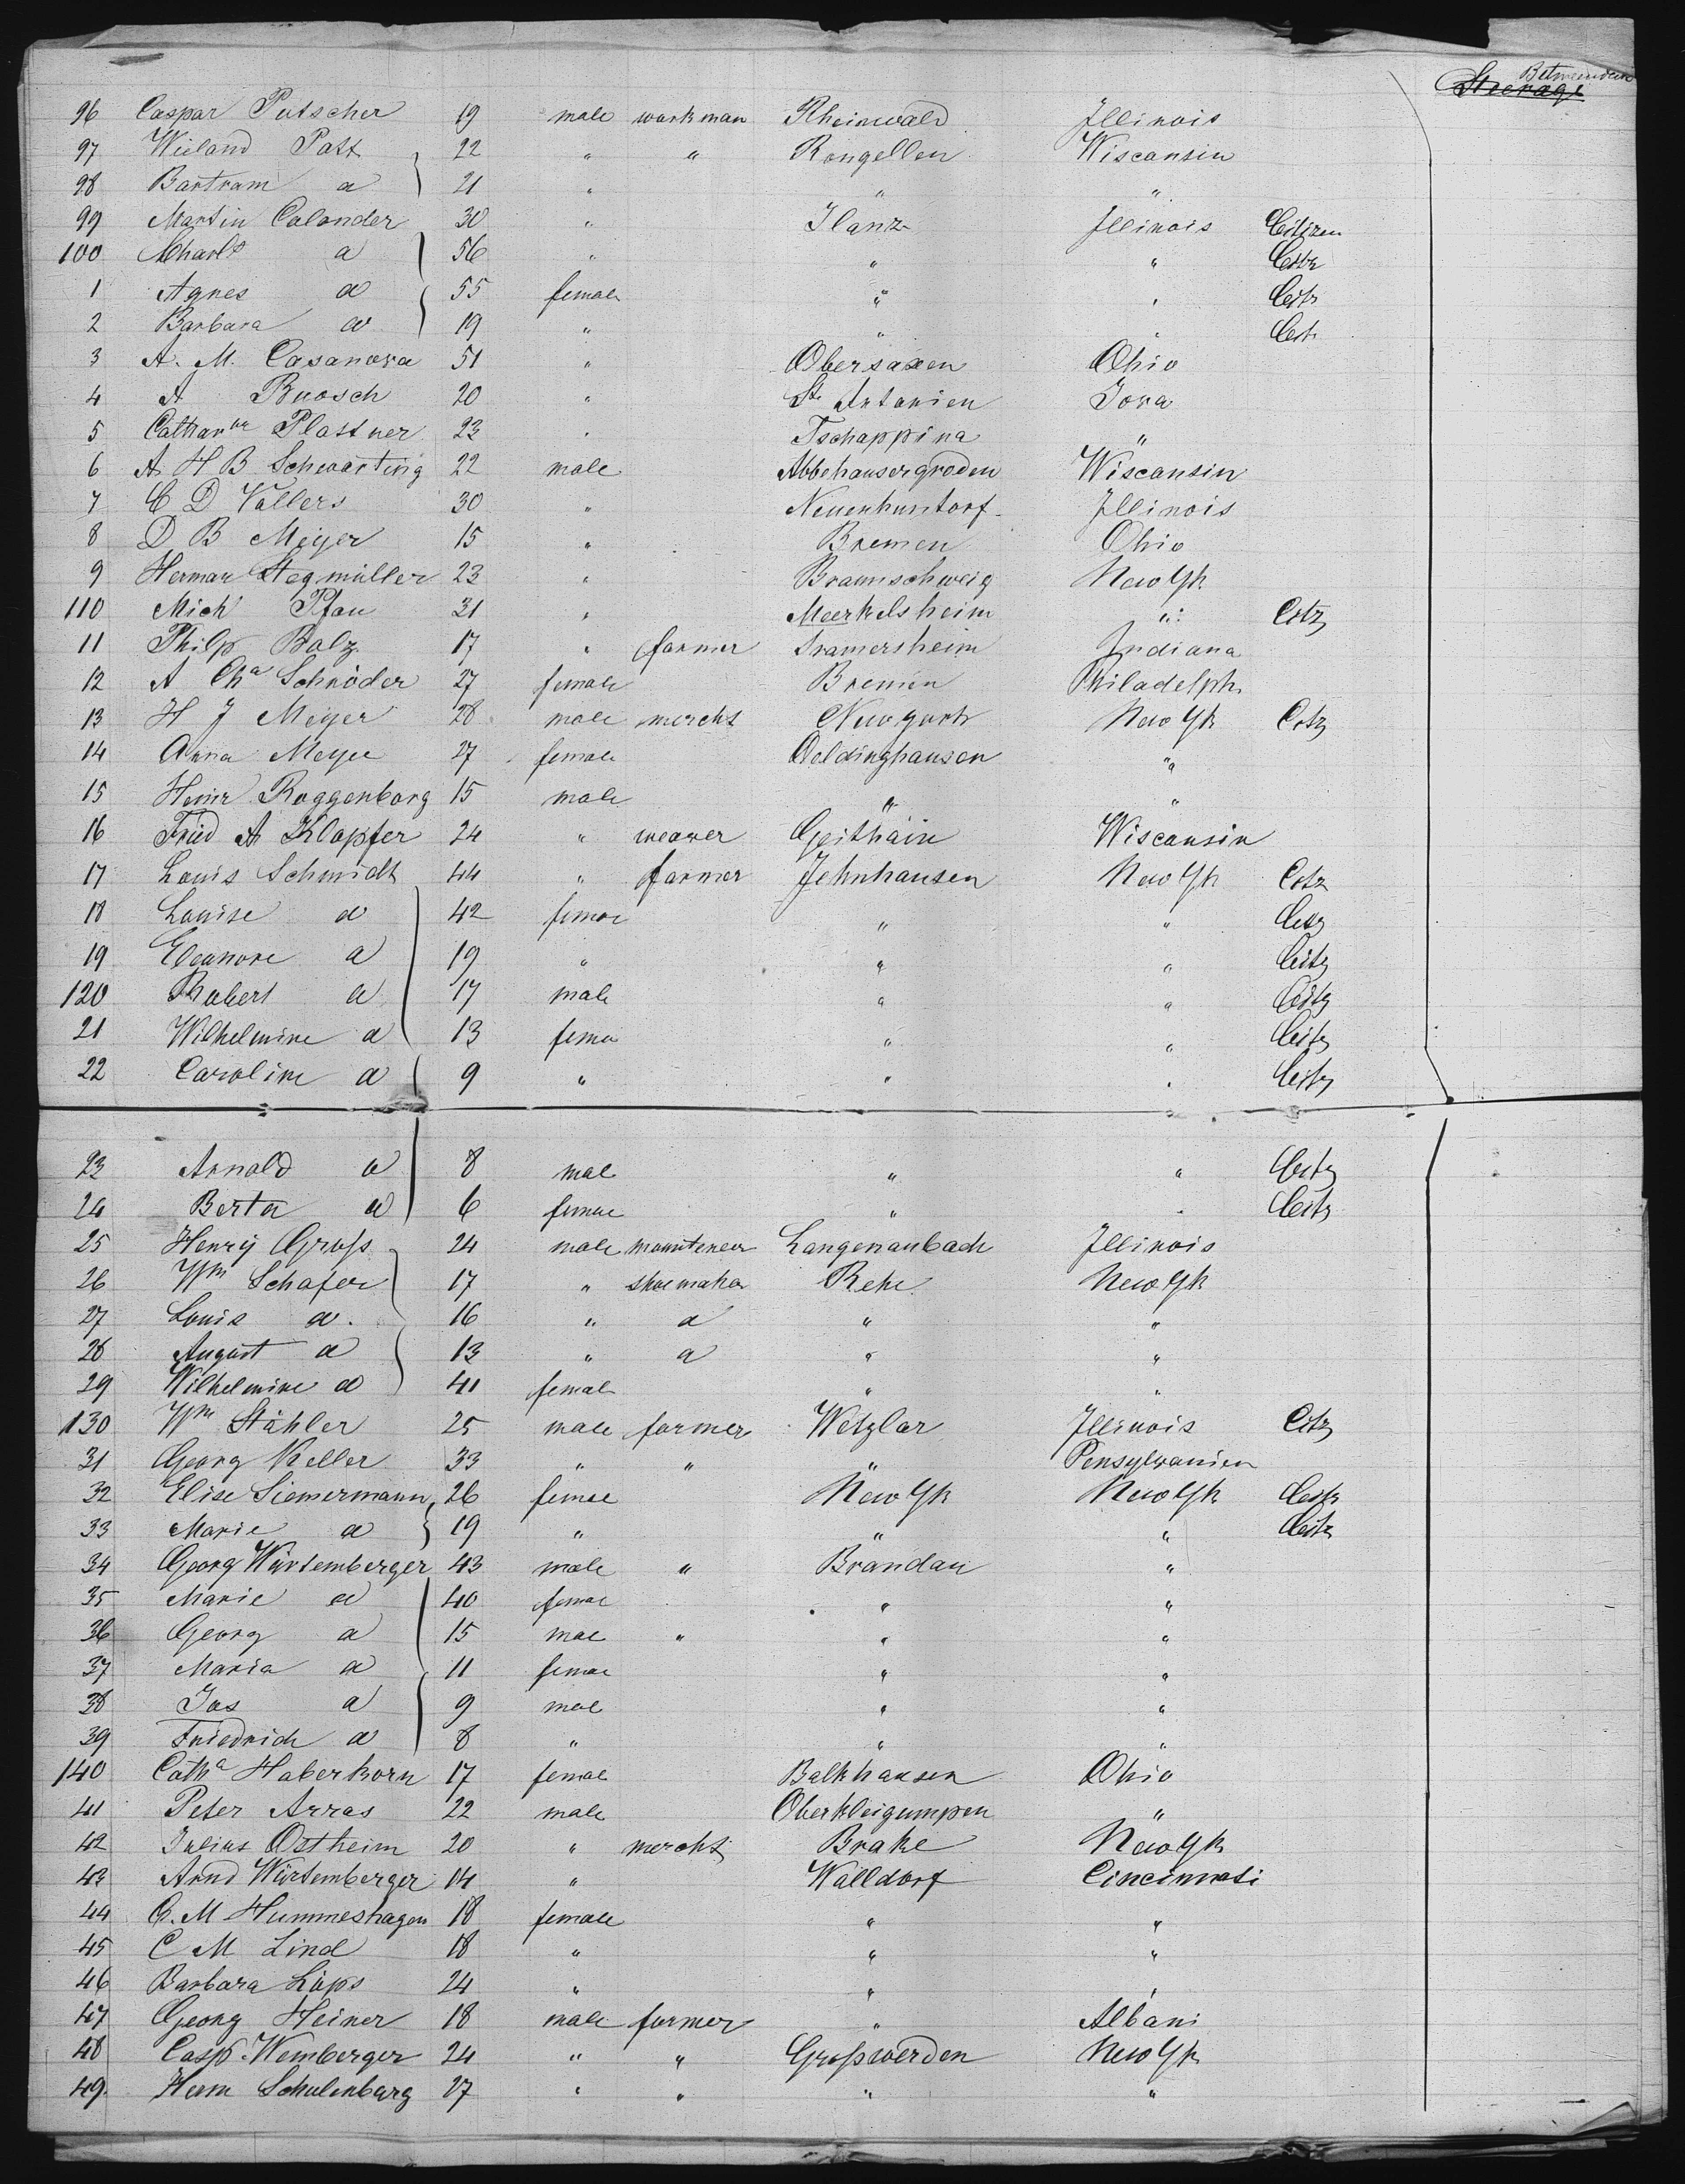 Betweendeck
Steerage
96 Caspar Putscher 19 male workman Rheinwald Illinois
97 Wieland Patt 22 " " Rongellen Wiscansin
98 Bartram a 21 " " "
99 Martin Calonder 30 " Ilanz Illinois Citizen
100 a 56 " " " Citz
1 Agnes a 55 female " " Citz
2 Barbara a 19 " " " Citz
3 A. M. Casanova 51 " Obersaxen Ohio
4 A Buosch 20 " St. Antonien Iova
5 Plattner 23 " Tschappina "
6 A H B Schwarting 22 male Abbehausergroden Wiscansin
7 C D Vollers 30 " Neuenhuntorf Illinois
8 D B Meyer 15 " Bremen Ohio
9 Herman Stegmüller 23 " Braunschweig New Yk
110 Mich Pfau 31 " Meerkelsheim " Citz
11 Philp Balz 17 " farmer Iramersheim Indiana
12 A Cha Schröder 27 female Bremen Philadelph.
13 H J Meyer 28 male mercht New Yk Citz
14 Anna Meyer 27 female Oeldinghausen "
15 Heinr Roggenborg 15 male " "
16 Fried A Klopfer 24 " weaver Geithain Wiscansin
17 Louis Schmidt 44 " farmer Jehnhausen New Yk Citz
18 Louise a 42 femae " " Citz
19 Eleanore a 19 " " " Citz
120 Robert a 17 male " " Citz
21 Wilhelmine a 13 fema " " Citz
22 Caroline a 9 " " " Citz
23 Arnold a 8 mae " " Citz
24 Berta a 6 femae " " Citz
25 Henry Gross 24 male mounteneer Langenaubach Illinois
26 Wm Schafer 17 " shoemaker Rehe New Yk
27 Louis a. 16 " a " "
28 August a 13 " a " "
29 Wilhelmine a 41 femal " "
130 Wm Stähler 25 male farmer Wetzlar Illinois Citz
31 Georg Keller 33 " " " Pensylvanien
32 Elise Siemermann 26 femae New Yk New Yk Citz
33 Marie a 19 " " " Citz
34 Georg Würtemberger 43 male " Brandau "
35 Marie a 40 femae " "
36 Georg a 15 mae " " "
37 Maria a 11 femae " "
38 Jos a 9 mae " "
39 Friedrich a 8 " " "
140 Catha Haberkorn 17 femae Balkhausen Ohio
41 Peter Arras 22 male Oberkleigumpen "
42 Julius Ostheim 20 " merchts Brake New Yk
43 Arnd Würtemberger 14 " Walldorf Cincinnati
44 G. M Hummeshagen 18 female " "
45 C M Lind 18 " " "
46 Barbara Löps 24 " " "
47 Georg Heiner 18 male farmer " Albani
48 Casp. Wemberger 24 " " Grosswerden New Yk
49 Herm Schulenbarg 27 " " " "